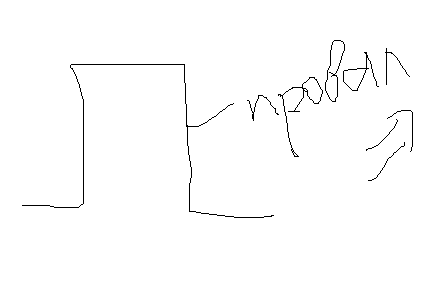 провал